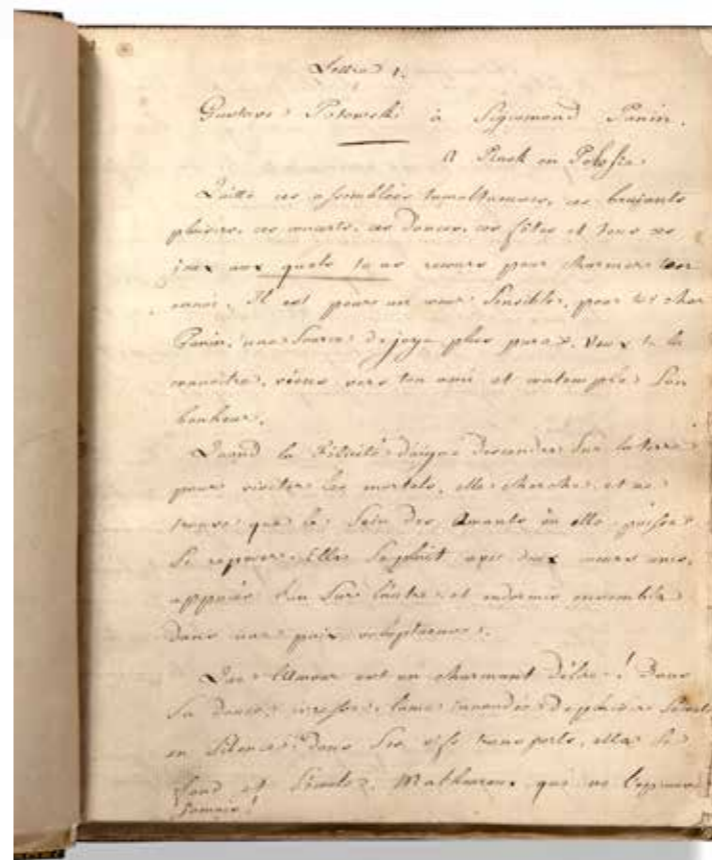 Lettre 1.
Gustave Potowski à Sigismond Panin.
A Pinsk en Polesie.
Quitte ces assemblées tumultueuses, ces bruiants
plaisirs, ces concerts, ces dances, ces fêtes et tous ces
jeux aux quels tu as recours pour charmer ton
ennui. Il est pour un cœur sensible, pour toi cher
Panin, une source de joye plus pure. Veux tu la
connoitre, viens vers ton ami et contemple son
bonheur.
Quand la Félicité daigne descendre sur la terre
pour visiter les mortels, elle cherche et ne
trouve que le sein des Amants où elle puisse
se reposer. Elle se plait avec deux cœurs unis,
appuiés l'un sur l'autre et endormis ensemble
dans une paix voluptueuse.
Que l'Amour est un charmant délire! Dans
sa douce ivresse, l'ame inondée de plaisirs
en silence: dans ses vifs transports, elle se
fond et s'écoule. Malheureux qui ne l'éprouva
jamais!